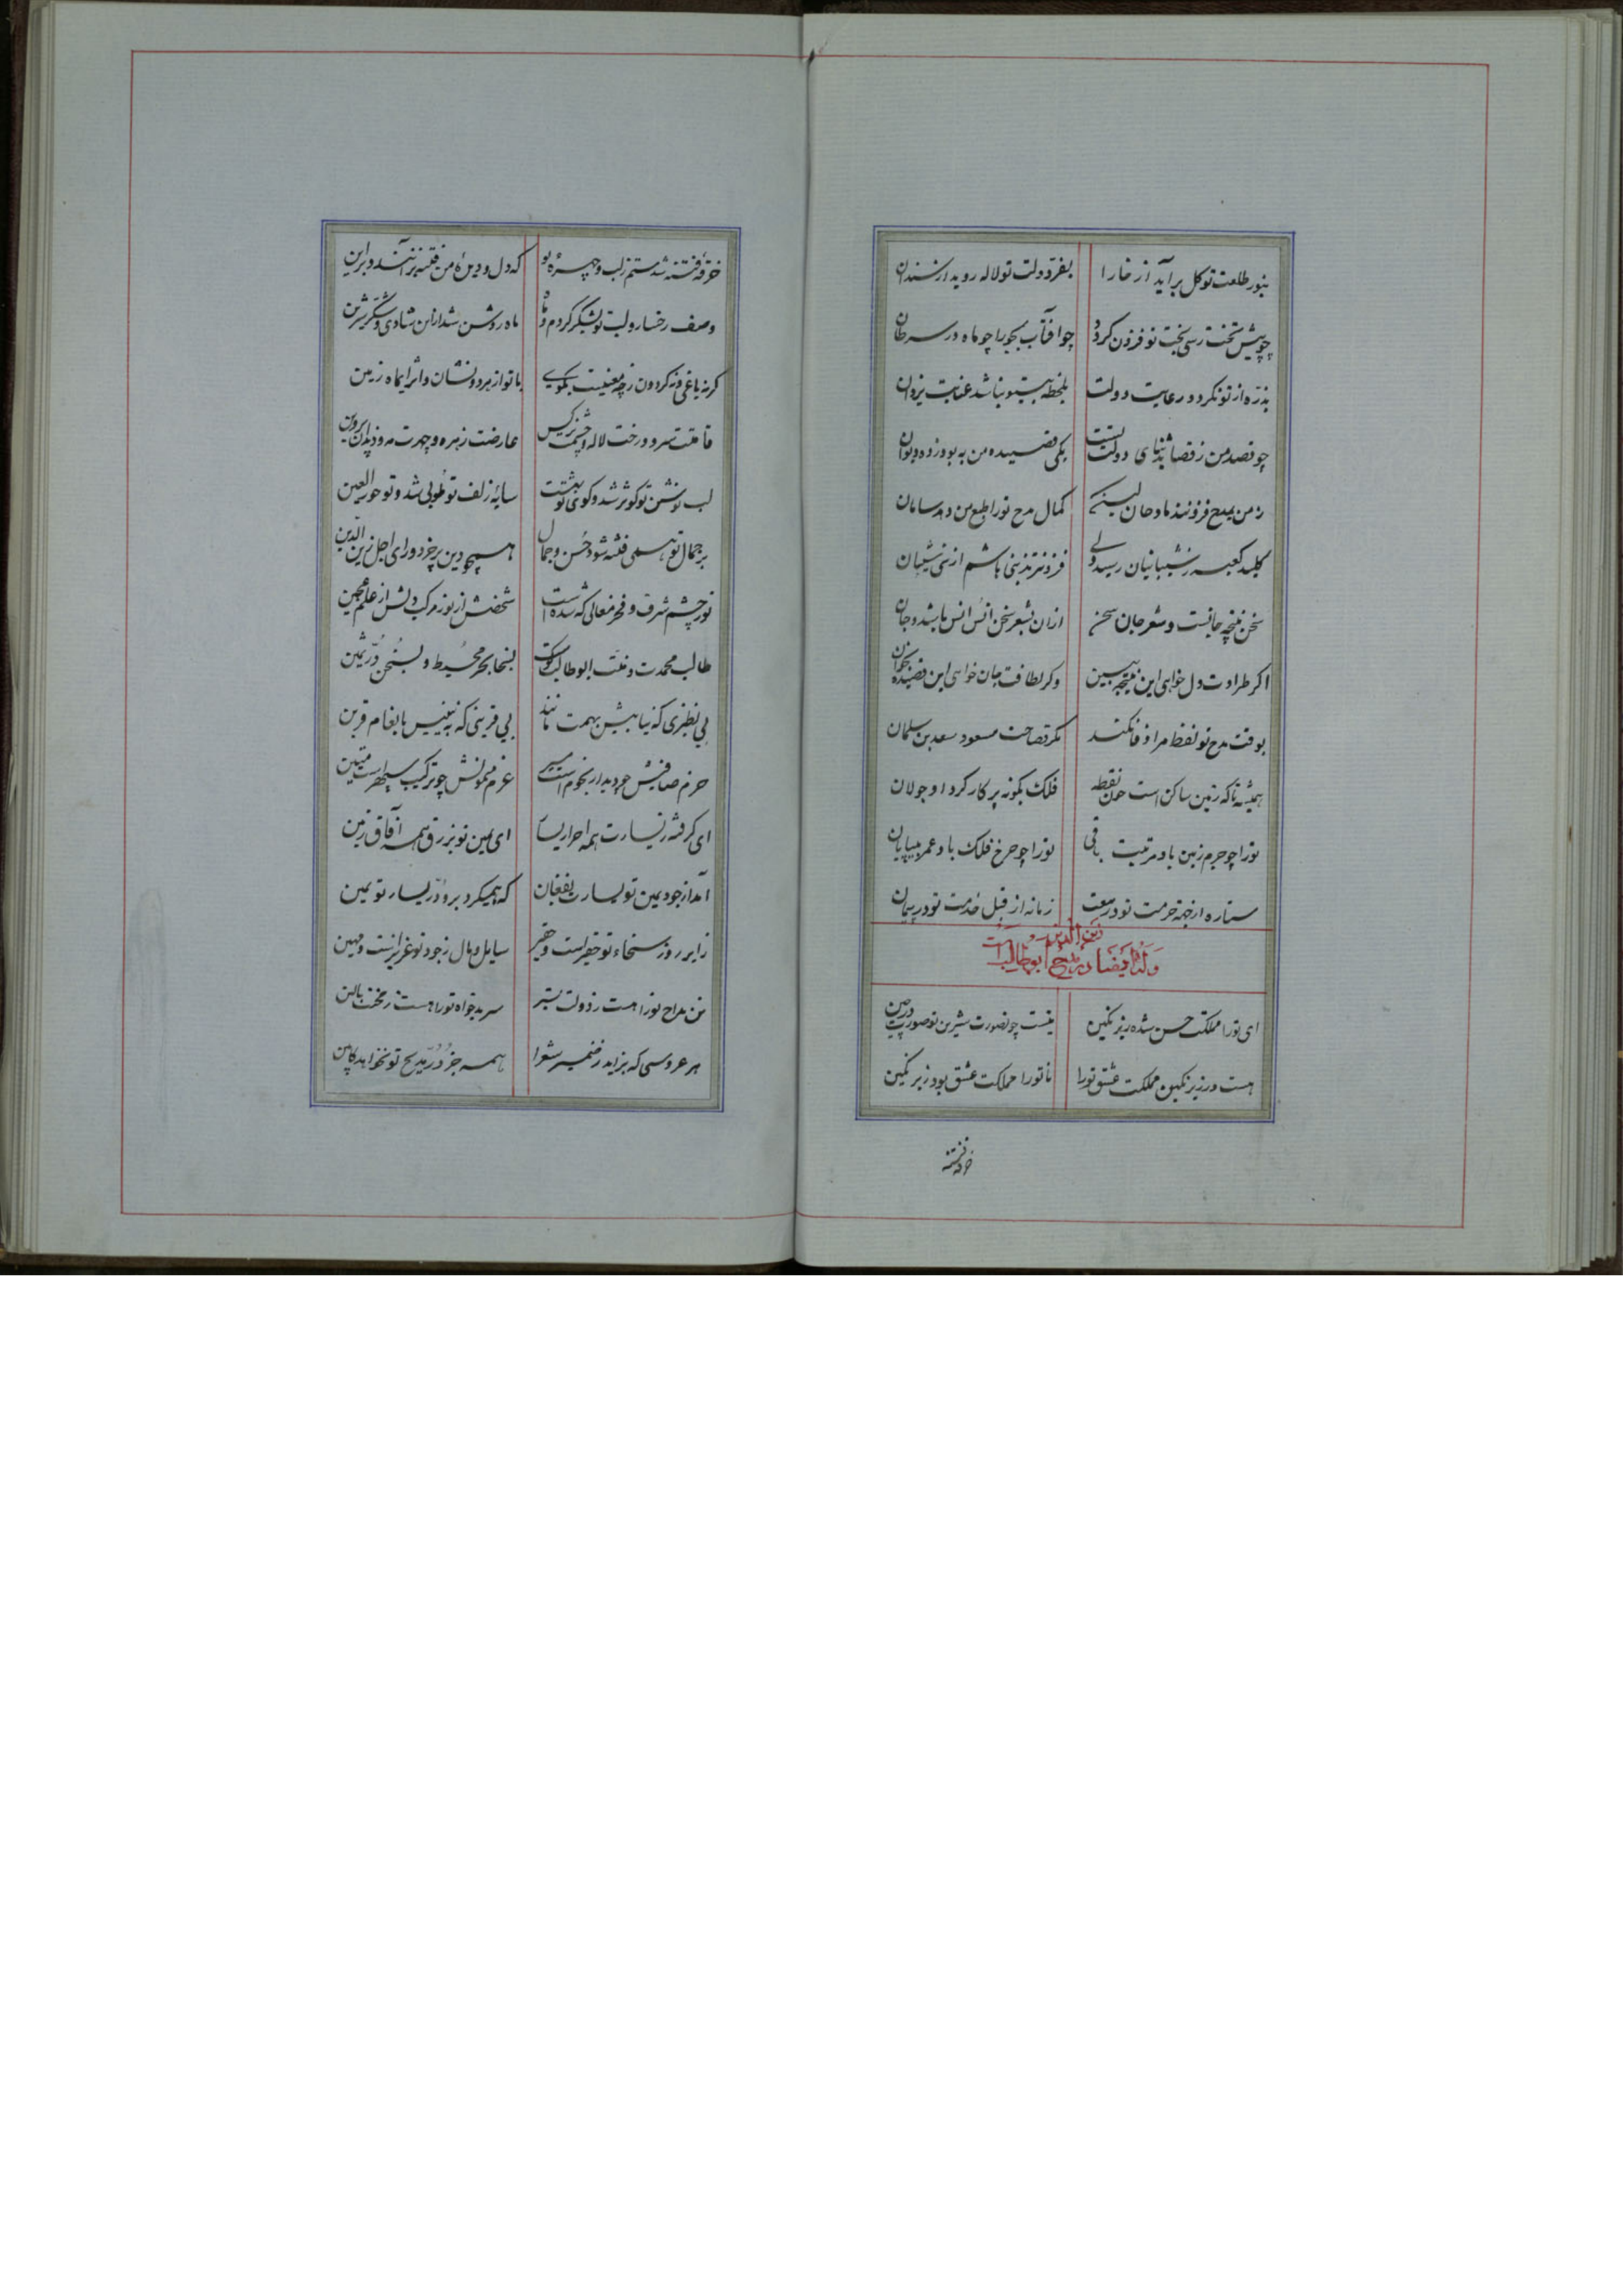 بنور طلعت تو گل برآید از خارا بفر دولت تو لاله روید از سندان
چو پیش تخت رسی بخت تو فزون گردد چو آفتاب بجوزا چو ماه در سرطان
بذره از تو نگردد رعایت دولت بلحظه بیتو نباشد عنایت یزدان
چو قصد من ز قصائد ثنای دولت تست یکی قصیده من به بود ز ده دیوان
ز من بمدح فزونند مادحان لیکن کمال مدح تو را طبع من دهد سامان
کلید کعبه ز شیبانیان رسید ولی فزونترند بنی هاشم از بنی شیبان
سخن نتیجه جانست و شعر جان سخن ازان بشعر سخن انس انس باشد و جان
اگر طراوت دل خواهی این نتیجه ببین وگر لطافت جان خواهی این قصیده بخوان
بوقت مدح تو لفظ مرا وفا نکند مگر فصاحت مسعود سعد بن سلمان
همیشه تا که زمین ساکن است چون نقطه فلک بگونه پرکار گرد او جولان
تو را چو جرم زمین باد مرتبت باقی تو را چو چرخ فلک باد عمر بیپایان
ستاره از جهة حرمت تو در بیعت زمانه از قبل خدمت تو در پیمان
وله ایضا در مدح ابوطالب زین الدین است
ای تو را مملکت حسن شده زیر نگین نیست چو نصورت شیرین تو صورت در چین
هست در زیر نگین مملکت عشق تو را تا تو را مملکت عشق بود زیر نگین
خرقه فتنه
خرقه فتنه شدستم زلب و چهره تو که دل و دیده من فتنه برآنند و برین
وصف رخسار و لب تو بشکر کردم و ماه ماه روشن شد ازان شادی و شکر شیرین
گر نه باغی و نه گردون ز چه معنیست بگوی با تو از هر دو نشان و اثر ای ماه زمین
قامتت سرو و رخت لاله و چشمت نرگس عارضت زهره و چهرت مه و دندان پروین
لب نوشین تو کوثر شد و کوی تو بهشت سایه زلف تو طوبی شد و تو حور العین
بر جمال تو همی فتنه شود حسن و جمال همچو دین بر خرد و رای اجل زین الدین
نور چشم شرف و فخر معالی که شده است شخصش از نور مرکب دلش از علم عجین
طالب محمدت و منت ابوطالب کوست بسخا بحر محیط و بسخن در ثمین
بی نظیری که نیابیش بهمت مانند بی قرینی که نبینیش بانعام قرین
حزم صافیش چو دیدار نجوم است منیر عزم میمونش چو ترکیب سپهر است متین
ای گرفته ز یسارت همه احرار یسار ای یمین تو بزر رزق همه آفاق زمین
آمد از جود یمین تو یسارت بفغان که همیگرد برو در یسار تو یمین
زایر روز سخاء تو حقیر است و حقیر سایل و مال ز جود تو عزیزست و مهین
تن مداح تو را هست ز دولت بستر سر بدخواه تو را هست ز محنت بالین
هر عروسی که بزاید ز ضمیر شعرا همه جز در مدیح تو نخواهد کابین